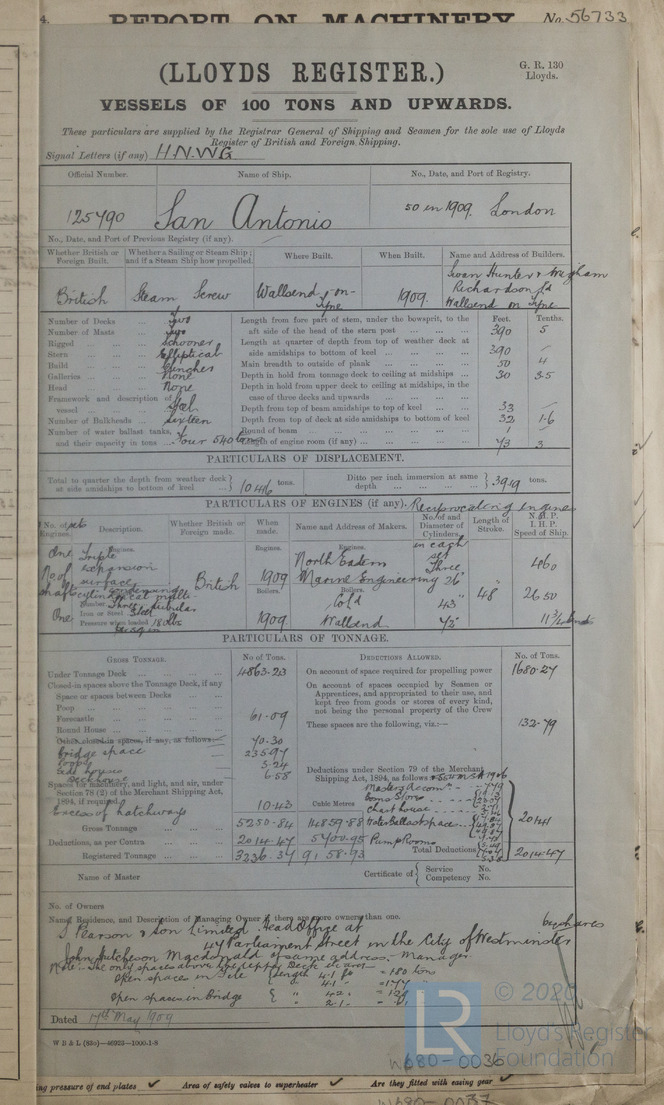 4. REPORT ON MACHINERY No. 56733
(LLOYDS REGISTER.)
G. R. 130
Lloyds.
VESSELS OF 100 TONS AND UPWARDS.
These particulars are supplied by the Registrar General of Shipping and Seamen for the sole use of Lloyds
Register of British and Foreign Shipping.
Signal Letters (if any) H.N.W.G
Official Number. Name of Ship. No., Date, and Port of Registry.
125790 San Antonio 50 in 1909. London
No., Date, and Port of Previous Registry (if any).
Whether British or Foreign Built. Whether a Sailing or Steam Ship; and if a Steam Ship how propelled. Where Built. When Built. Name and Address of Builders.
British Steam Screw Wallsend-on-Tyne 1909. Swan Hunter & Wigham Richardson Ld Wallsend on Tyne
Number of Decks Two
Number of Masts Two
Rigged Schooner
Stern Elliptical
Build Clincher
Galleries None
Head None
Framework and description of vessel Steel
Number of Bulkheads Sixteen
Number of water ballast tanks, and their capacity in tons Four 540 tons
Feet. Tenths.
Length from fore part of stem, under the bowsprit, to the aft side of the head of the stern post 390 5
Length at quarter of depth from top of weather deck at side amidships to bottom of keel 390 -
Main breadth to outside of plank 50 4
Depth in hold from tonnage deck to ceiling at midships 30 35
Depth in hold from upper deck to ceiling at midships, in the case of three decks and upwards
Depth from top of beam amidships to top of keel 33 -
Depth from top of deck at side amidships to bottom of keel 32 1.6
Round of beam 1 -
Length of engine room (if any) 73 3
PARTICULARS OF DISPLACEMENT.
Total to quarter the depth from weather deck at side amidships to bottom of keel 10416 tons. Ditto per inch immersion at same depth 39.9 tons.
PARTICULARS OF ENGINES (if any). Reciprocating engines
No. of sets Engines. Description. Whether British or Foreign made. When made. Name and Address of Makers. No. of and Diameter of Cylinders. Length of Stroke. N.H.P. I.H.P. Speed of Ship.
Engines. Engines. Engines. in each set
One Triple expansion surface British 1909 North Eastern Marine Engineering Three 26" 460
No of shafts Boilers. Boilers. Cold 43" 48" 2650
One Number Three Iron or Steel Steel Pressure when loaded 180 lbs 1909 Wallsend 72" 11 3/4 knots
PARTICULARS OF TONNAGE.
GROSS TONNAGE. No. of Tons. DEDUCTIONS ALLOWED. No. of Tons.
Under Tonnage Deck 4863.23
Closed-in spaces above the Tonnage Deck, if any
Space or spaces between Decks
Poop
Forecastle 61.09
Round House
Other closed-in spaces, if any, as follows 70.30
Bridge space 235.97
3.24
6.58
Spaces for machinery, and light, and air, under Section 78 (2) of the Merchant Shipping Act, 1894, if required
Excess of hatchways 10.43
Gross Tonnage 5250.84 14859.88
Deductions, as per Contra 2014.47 5700.95
Registered Tonnage 3236.37 9158.93
Cubic Metres
On account of space required for propelling power 1680.27
On account of spaces occupied by Seamen or Apprentices, and appropriated to their use, and kept free from goods or stores of every kind, not being the personal property of the Crew 132.79
These spaces are the following, viz.:—
Deductions under Section 79 of the Merchant Shipping Act, 1894, as follows
Masters Accomn
Boms Store
Chart house
Water Ballast space
Pump Rooms
201.41
Total Deductions 2014.47
Name of Master Certificate of Service No. Competency No.
No. of Owners
Name, Residence, and Description of Managing Owner if there are more owners than one.
S Pearson & Son Limited Head Office at
47 Parliament Street in the City of Westminster
John Hutcheson Macdonald of same address. Manager
Note:- The only spaces above the Upper Deck
Open spaces in Length 4.1 ft = 180 tons
Open spaces in Bridge
Dated 17th May 1909
W B & L (83o)—46923—1000-1-8
LR © 2020
Lloyd's Register
Foundation
W680-0036
ng pressure of end plates ✓ Area of safety valves to superheater ✓ Are they fitted with easing gear ✓
W680-0037